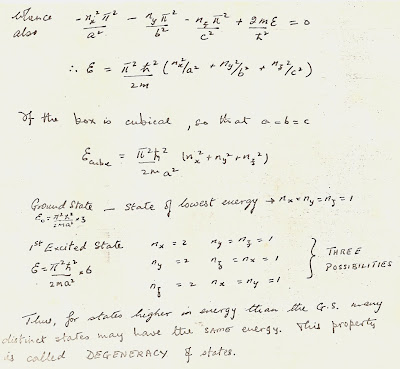 Hence - nx²π²/a² - ny²π²/b² - nz²π²/c² + 2mE/ħ² = 0
also
∴ E = π²ħ²/2m (nx²/a² + ny²/b² + nz²/c²)
If the box is cubical, so that a = b = c
Ecube = π²ħ²/2ma² (nx² + ny² + nz²)
Ground State — State of lowest energy → nx = ny = nz = 1
E0 = π²ħ²/2ma² × 3
1st Excited State nx = 2 ny = nz = 1
E = π²ħ²/2ma² × 6 ny = 2 nz = nx = 1 } THREE POSSIBILITIES
nz = 2 nx = ny = 1
Thus, for states higher in energy than the G.S. many
distinct states may have the SAME energy. This property
is called DEGENERACY of states.